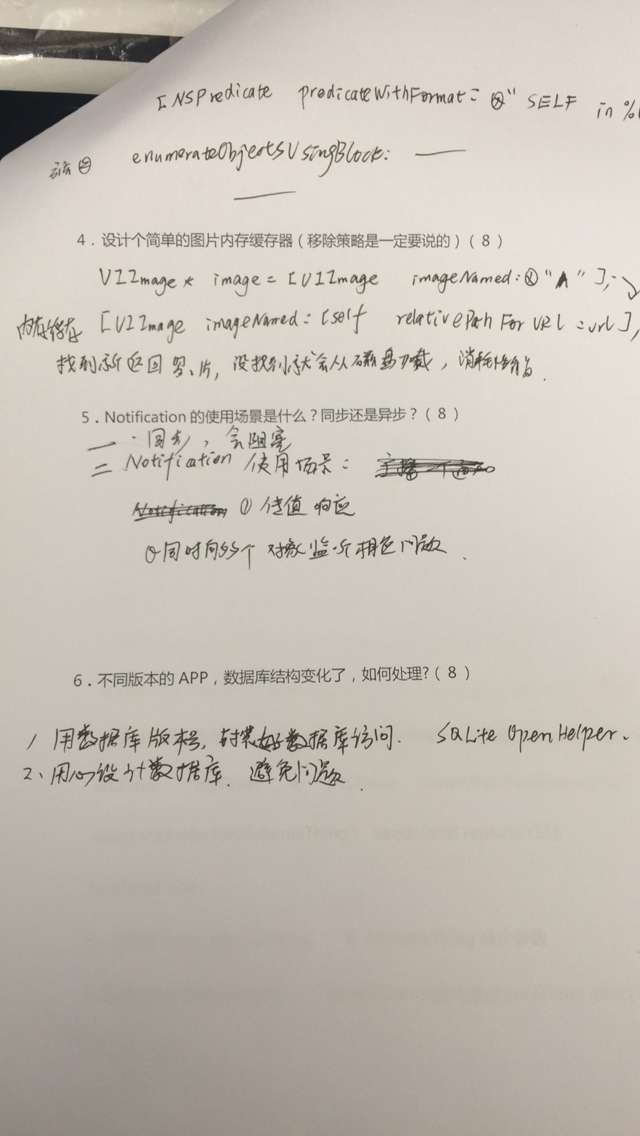 [NSPredicate predicateWithFormat: @" SELF in %
方法② enumerateObjectsUsingBlock: ——
——
4．设计个简单的图片内存缓存器（移除策略是一定要说的）（8）
UIImage * image = [UIImage imageNamed:@"A"];
内存缓存 [UIImage imageNamed: [self relativePathForURL :url],
找到就返回图片，没找到就会从磁盘加载，消耗性能.
5．Notification 的使用场景是什么？同步还是异步？（8）
一·同步，会阻塞
二 Notification 使用场景：
① 传值 响应
②同时向多个对象监听相应问题.
6．不同版本的 APP，数据库结构变化了，如何处理?（8）
1、用数据库版本号，封装好数据库访问. SQLite OpenHelper.
2、用心设计数据库. 避免问题.